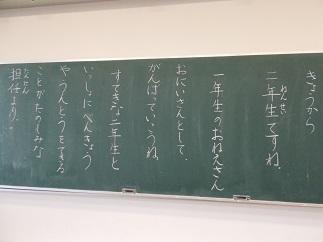 きょうから
二年生ですね。
一年生のおねえさん
おにいさんとして、
がんばっていこうね。
すてきな二年生と
いっしょにべんきょう
やうんどうをできる
ことがたのしみな
担任より。